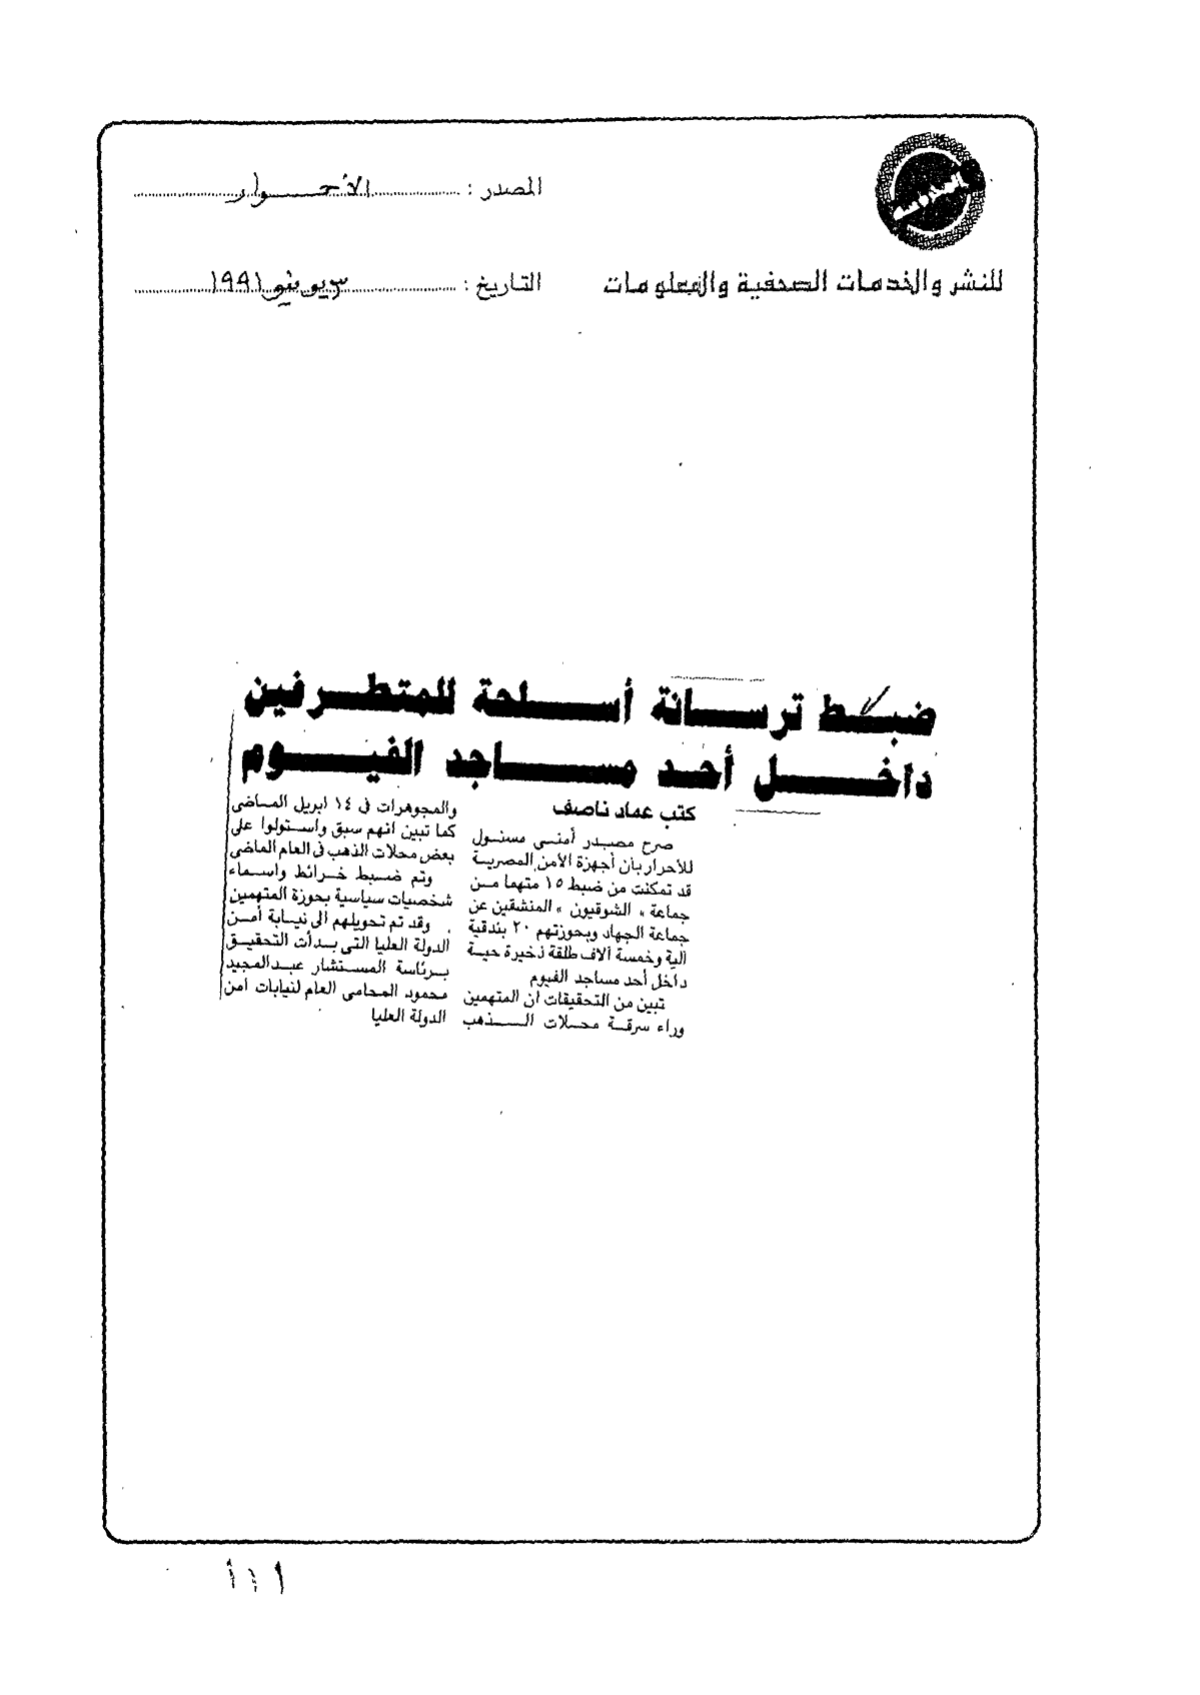 المصدر : الأحرار
للنشر والخدمات الصحفية والمعلومات
التاريخ : ٣ يونيو ١٩٩١
ضبط ترسانة أسلحة للمتطرفين
داخل أحد مساجد الفيوم
كتب عماد ناصف
صرح مصدر أمنى مسئول
للأحرار بأن أجهزة الأمن المصرية
قد تمكنت من ضبط ١٥ متهما من
جماعة « الشوقيون » المنشقين عن
جماعة الجهاد وبحوزتهم ٢٠ بندقية
آلية وخمسة آلاف طلقة ذخيرة حية
داخل أحد مساجد الفيوم
تبين من التحقيقات ان المتهمين
وراء سرقة محلات الذهب
والمجوهرات فى ١٤ ابريل الماضى
كما تبين انهم سبق واستولوا على
بعض محلات الذهب فى العام الماضى
وتم ضبط خرائط واسماء
شخصيات سياسية بحوزة المتهمين
وقد تم تحويلهم الى نيابة أمن
الدولة العليا التى بدأت التحقيق
برئاسة المستشار عبدالمجيد
محمود المحامى العام لنيابات امن
الدولة العليا